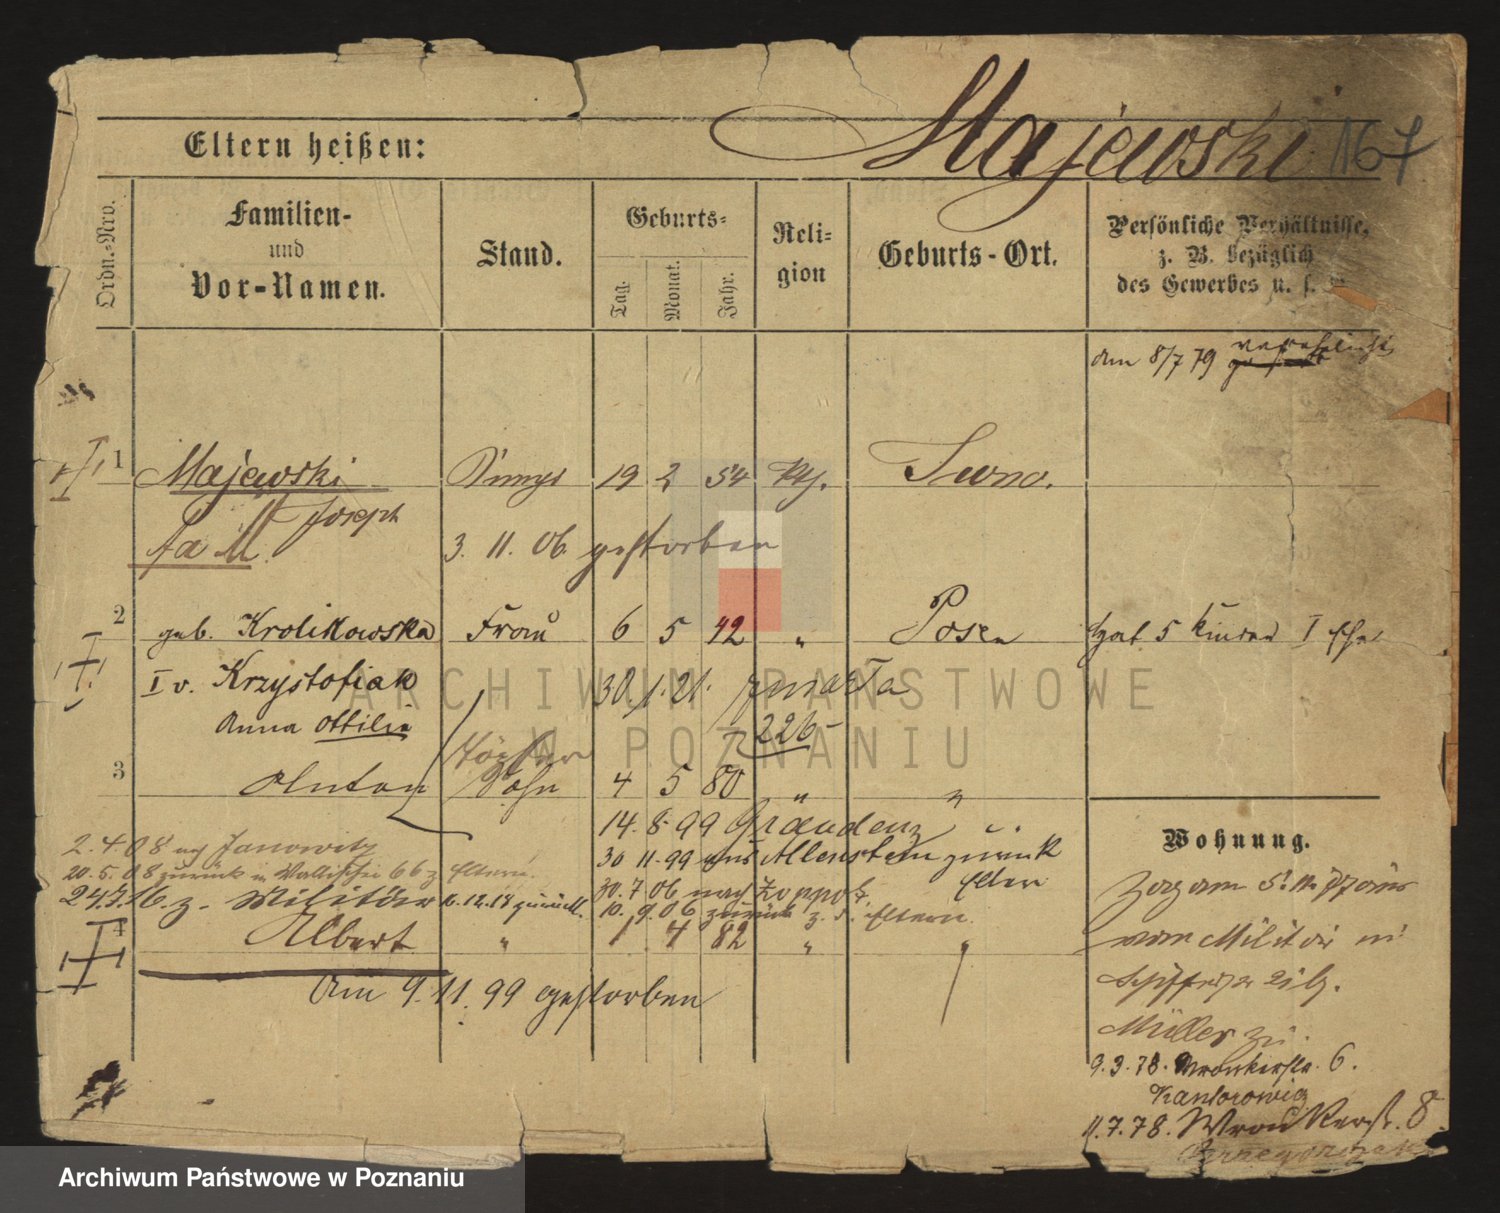 Majewski 167
Eltern heißen:
Ordn.-Nro.
Familien-
und
Vor-Namen.
Stand.
Geburts-
Tag.
Monat.
Jahr.
Reli-
gion
Geburts-Ort.
Persönliche Verhältnisse,
z. B. bezüglich
des Gewerbes u. s.
am 8/7 79 verehelicht
1 Majewski 19 2 54 kth. Iwno.
Joseph
3. 11. 06 gestorben
2 geb. Krolikowska Frau 6 5 42 " Posen hat 5 Kinder I Ehe
I v. Krzystofiak 30/1. 21. zmarła
Anna Ottilie 226
3 Anton Sohn 4 5 80 " "
14. 8. 99 Graudenz
2.4.08 nach Janowitz
30 11. 99 aus Allenstein zurück
20.5.08 zurück Wallischei 66 z. Eltern.
30. 7. 06 nach Zoppot
Eltern
24.7.16 z. Militär 12.18 zurück.
10. 9. 06 zurück z. d. Eltern.
4 Albert " 1 4 82 " "
Am 9. 11. 99 gestorben
Wohnung.
Zog am
vom Militär
Müller
9.3.78. Wronkerstr. 6.
Kantorowicz
11.7.78. Wronkerstr. 8
ARCHIWUM PAŃSTWOWE
W POZNANIU
Archiwum Państwowe w Poznaniu